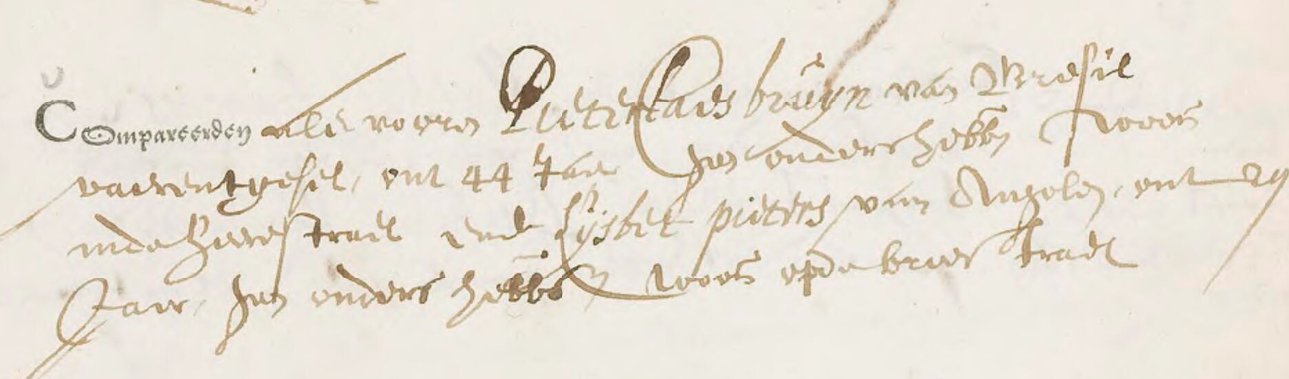 Compareerden als vooren Pieter Claes bruijn van Bresil
vaerentgesel, out 44 Jaer Geen ouders hebbn woont
inde heerestraet ende Lijsbet pieters van Angola, out 29
Jaer, Geen ouders hebbn woont opde bree straet